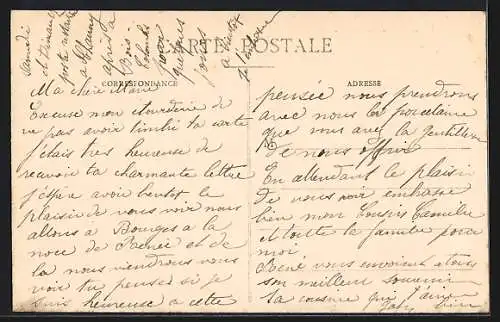 CARTE POSTALE
CORRESPONDANCE
ADRESSE
Ma chère Marie
Excuse mon étourderie de
ne pas avoir timbré ta carte
j'étais très heureuse de
recevoir ta charmante lettre
j'espère avoir bentot le
plaisir de vous voir nous
allons a Bourges a la
noce de et de
la nous viendrons vous
voir tu penses si je
suis heureuse a cette
pensée nous prendrons
avec nous la porcelaine
que vous avez la gentillesse
de nous offrir
En attendant le plaisir
de vous voir embrasse
bien mon Camille
et toute la famille pour
moi
René vous envoient a tous
son meilleur souvenir
ta cousine qui t'aime
bien
Samedi
et dimanche
poste restante
a
après la
Bois
pour
quelques
jours
a bientot